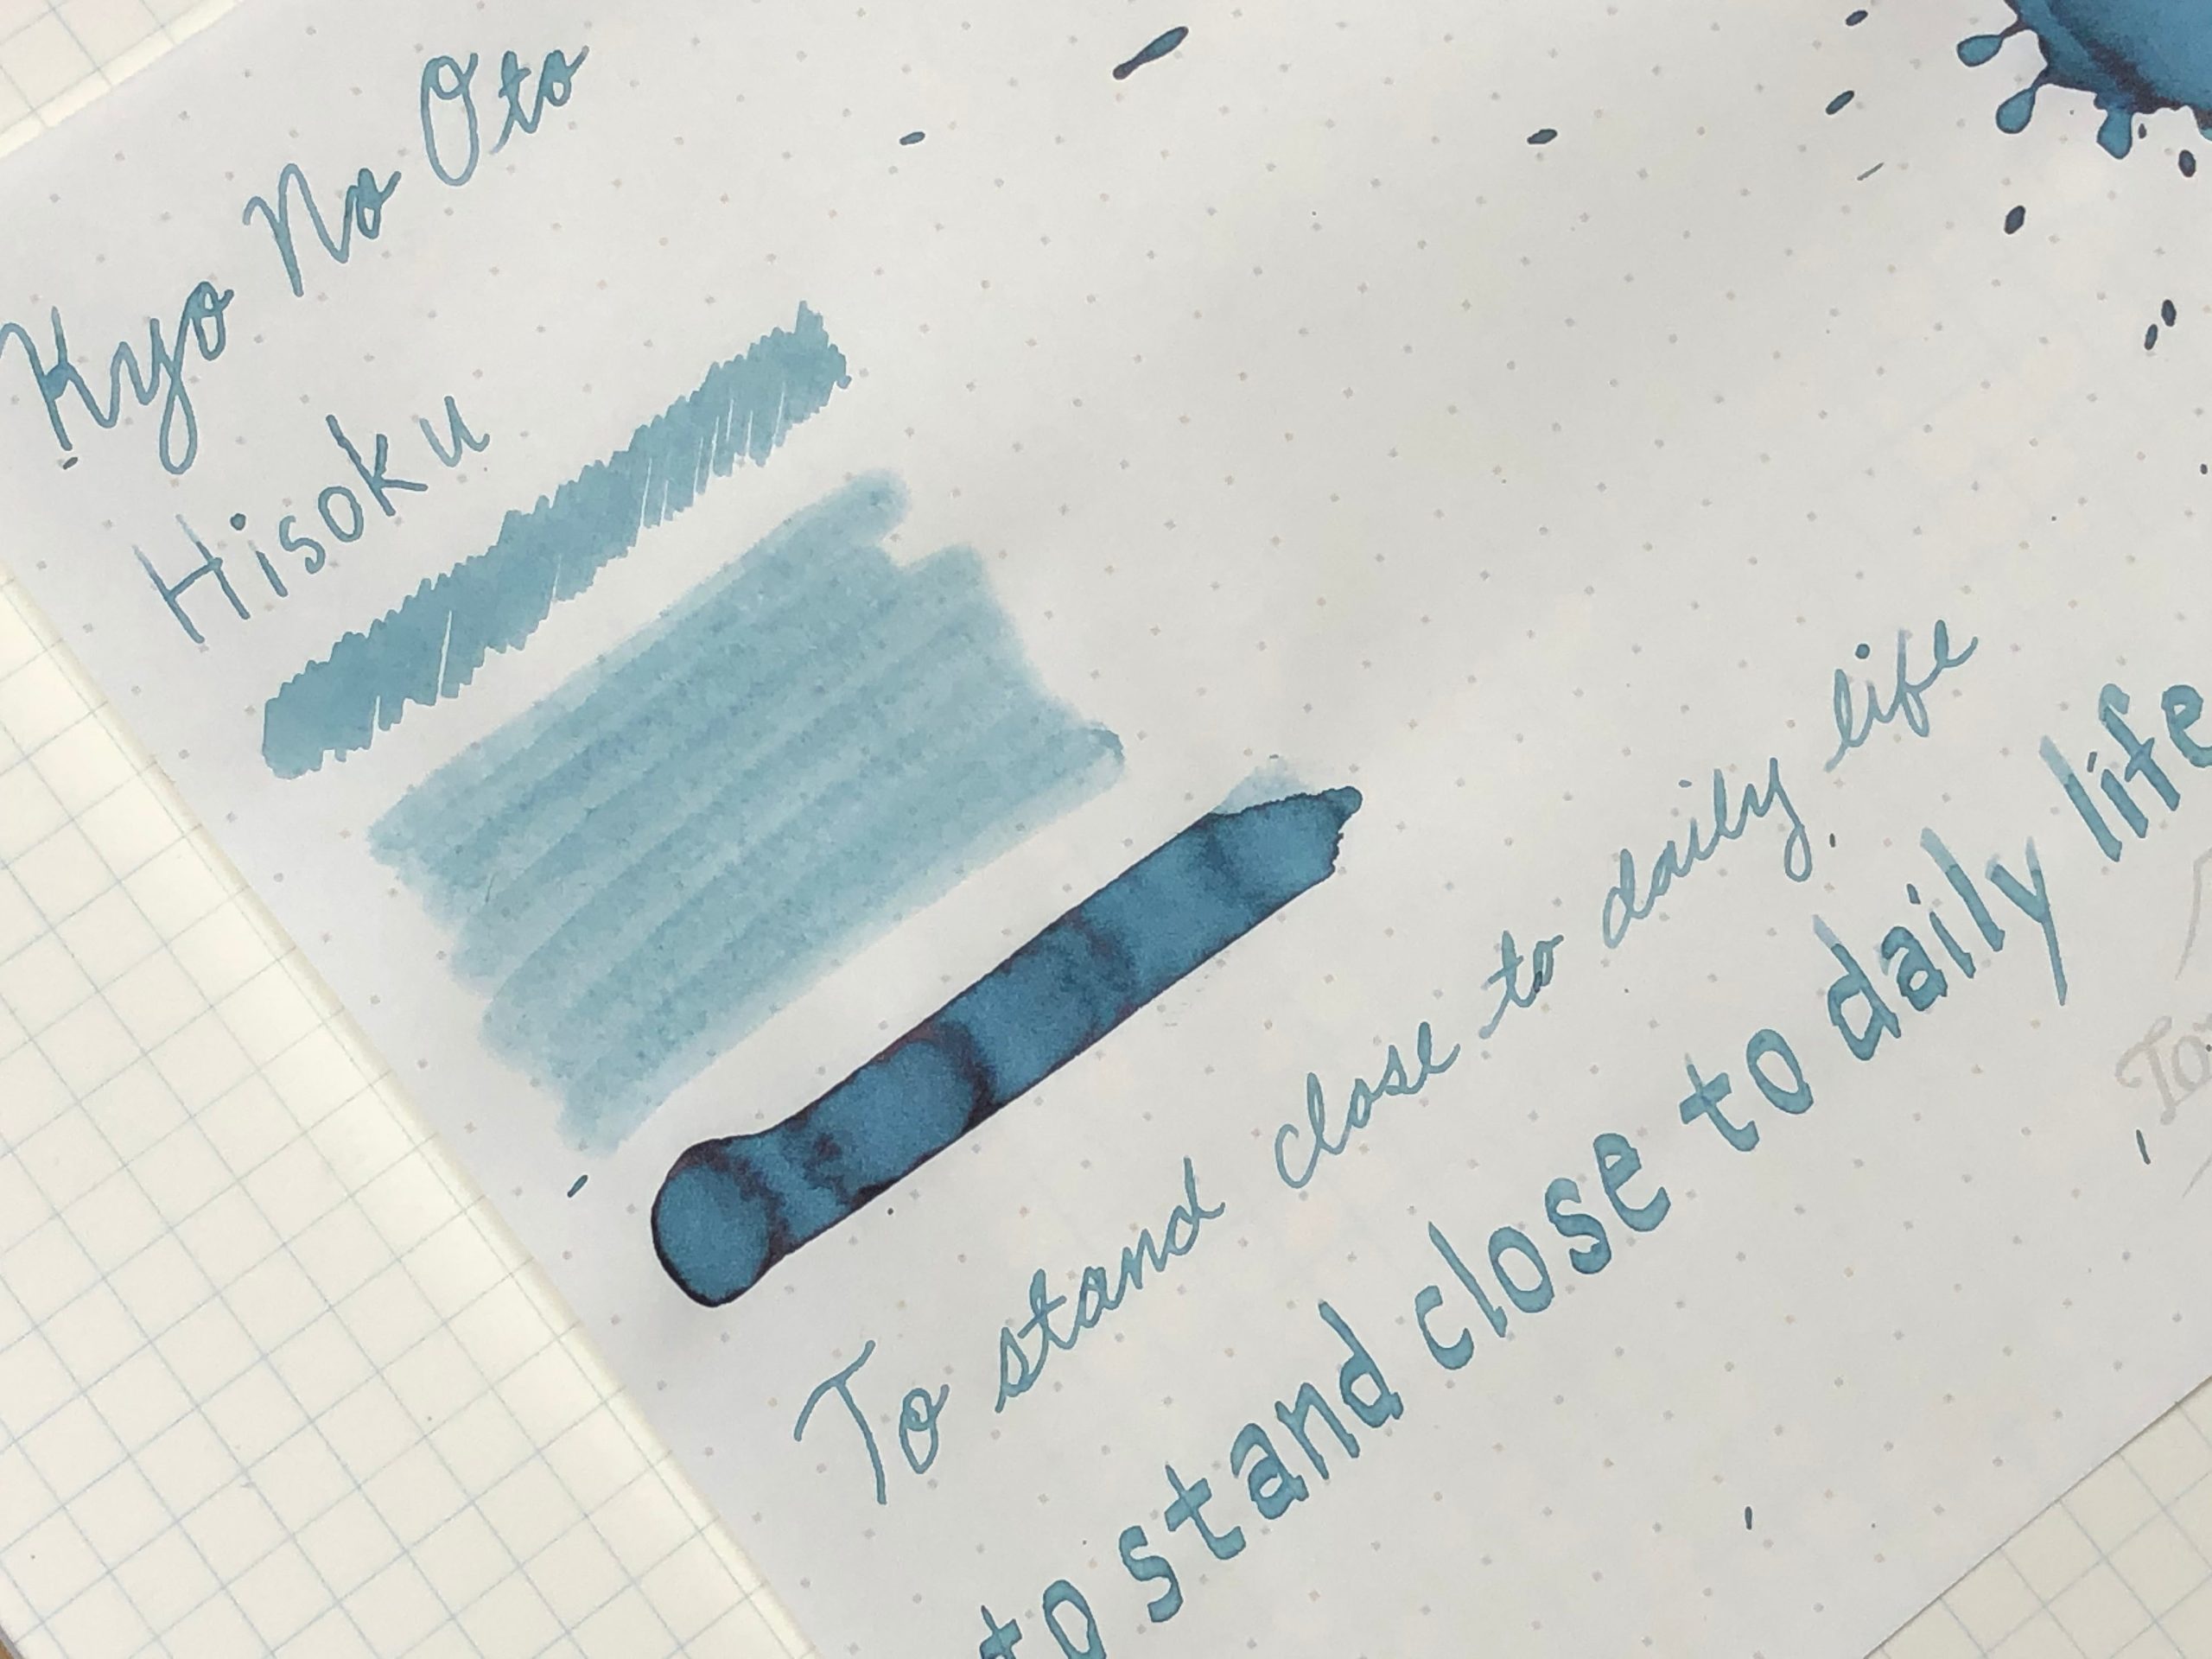 Kyo No Oto
Hisoku
To stand close to daily life
to stand close to daily life